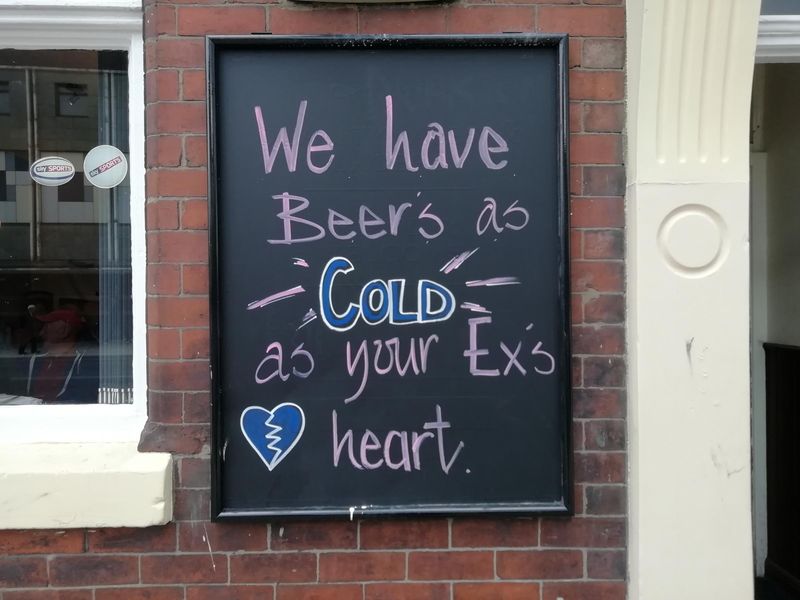 We have
Beer's as
COLD
as your Ex's
heart.
sky SPORTS
sky SPORTS